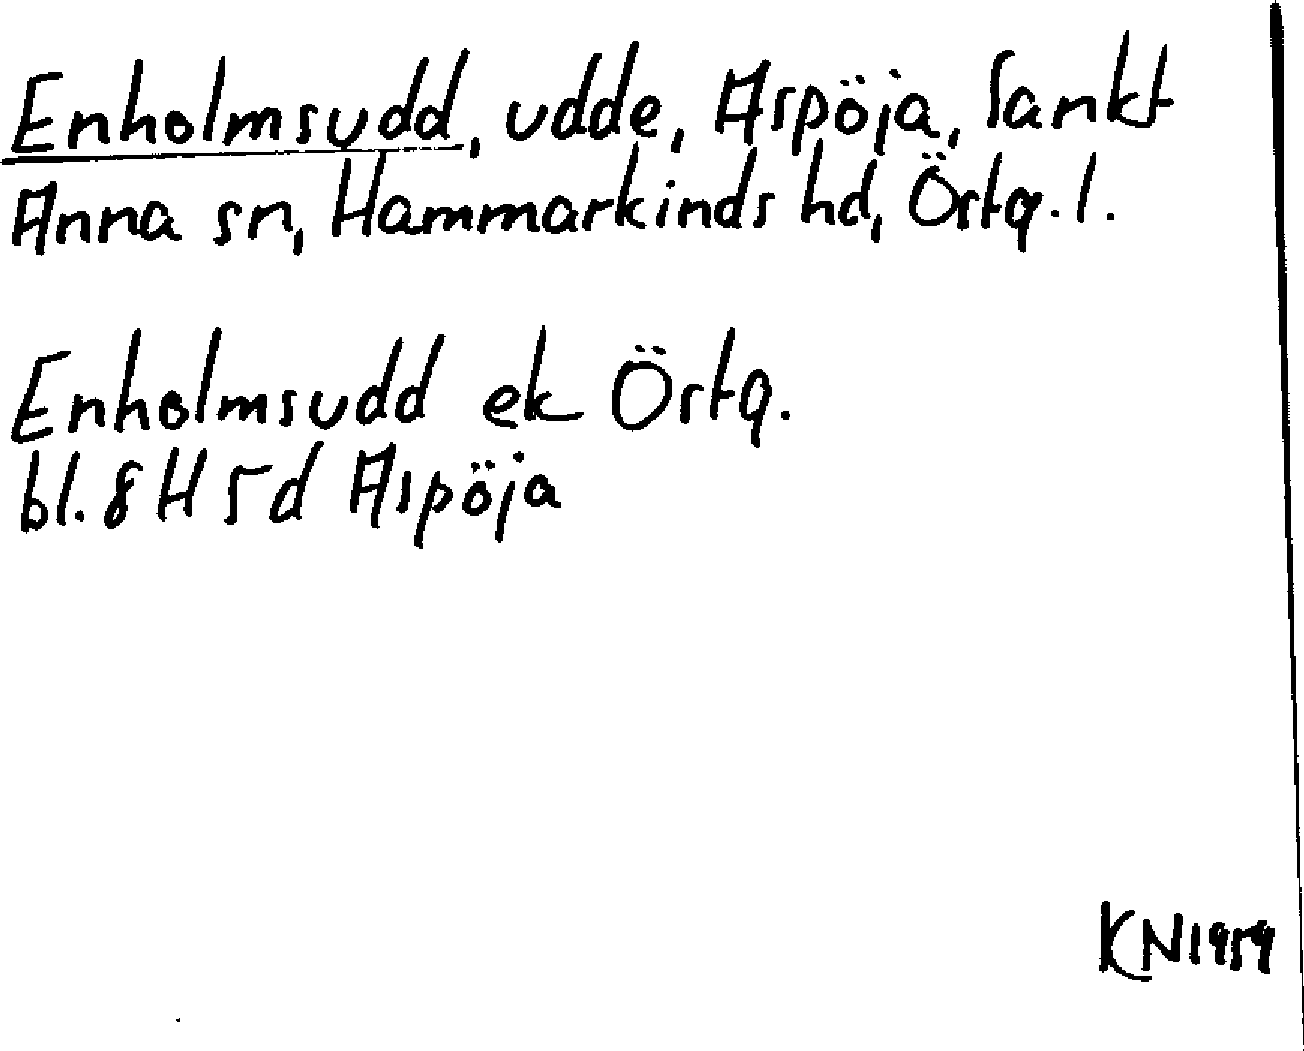 Enholmsudd, udde, Aspöja, Sankt
Anna sn, Hammarkinds hd, Östg. l.
Enholmsudd ek Östg.
bl. 8 H 5 d Aspöja
KN 1959